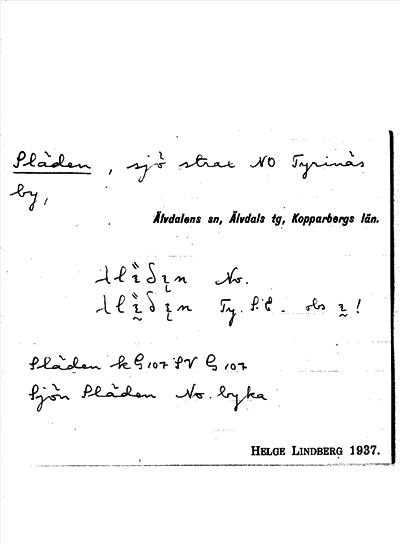 Släden, sjö strax NO Tyrinäs
by,
Älvdalens sn, Älvdals tg, Kopparbergs län.
No.
Ty. S.E. obs !
Släden k G 107 SV G 107
Sjön Släden No. byka
HELGE LINDBERG 1937.